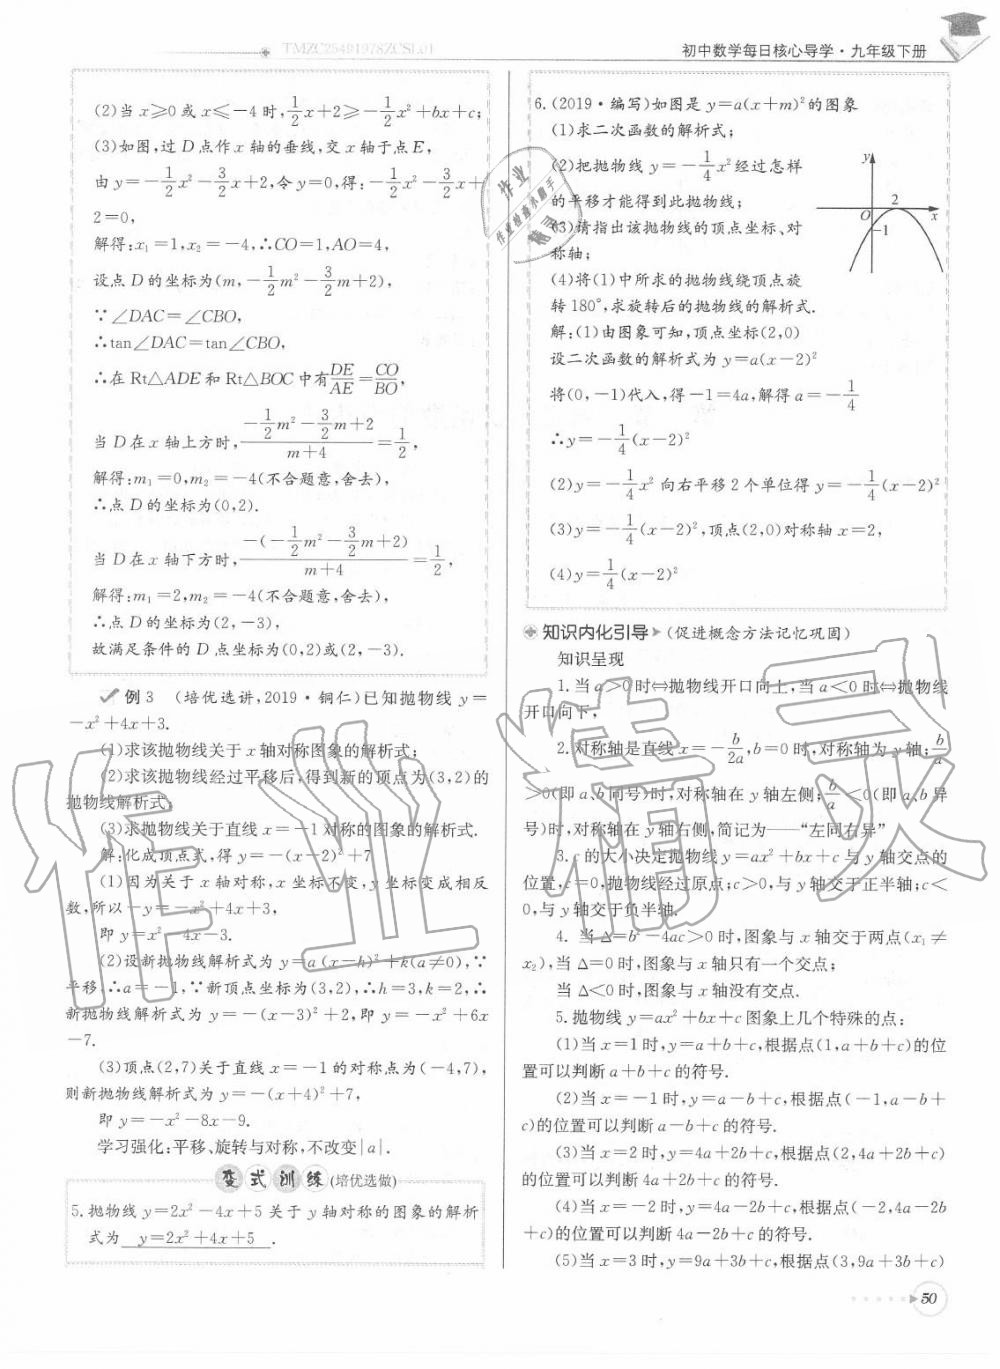 TMZC25491978ZCSL01
初中数学每日核心导学·九年级下册
(2)当 x≥0 或 x≤-4 时,1/2x+2≥-1/2x²+bx+c;
(3)如图,过 D 点作 x 轴的垂线,交 x 轴于点 E,
由 y=-1/2x²-3/2x+2,令 y=0,得:-1/2x²-3/2x+
2=0,
解得:x₁=1,x₂=-4,∴CO=1,AO=4,
设点 D 的坐标为(m,-1/2m²-3/2m+2),
∵∠DAC=∠CBO,
∴tan∠DAC=tan∠CBO,
∴在 Rt△ADE 和 Rt△BOC 中有DE/AE=CO/BO,
当 D 在 x 轴上方时,(-1/2m²-3/2m+2)/(m+4)=1/2,
解得:m₁=0,m₂=-4(不合题意,舍去),
∴点 D 的坐标为(0,2).
当 D 在 x 轴下方时,-(-1/2m²-3/2m+2)/(m+4)=1/2,
解得:m₁=2,m₂=-4(不合题意,舍去),
∴点 D 的坐标为(2,-3),
故满足条件的 D 点坐标为(0,2)或(2,-3).
例 3 (培优选讲,2019·铜仁)已知抛物线 y=
-x²+4x+3.
(1)求该抛物线关于 x 轴对称图象的解析式;
(2)求该抛物线经过平移后,得到新的顶点为(3,2)的
抛物线解析式;
(3)求抛物线关于直线 x=-1 对称的图象的解析式.
解:化成顶点式,得 y=-(x-2)²+7
(1)因为关于 x 轴对称,x 坐标不变,y 坐标变成相反
数,所以-y=-x²+4x+3,
即 y=x²-4x-3.
(2)设新抛物线解析式为 y=a(x-h)²+k(a≠0),∵
平移,∴a=-1,∵新顶点坐标为(3,2),∴h=3,k=2,∴
新抛物线解析式为 y=-(x-3)²+2,即 y=-x²+6x
-7.
(3)顶点(2,7)关于直线 x=-1 的对称点为(-4,7),
则新抛物线解析式为 y=-(x+4)²+7,
即 y=-x²-8x-9.
学习强化:平移、旋转与对称,不改变|a|.
变式训练(培优选做)
5.抛物线 y=2x²-4x+5 关于 y 轴对称的图象的解析
式为 y=2x²+4x+5 .
6.(2019·编写)如图是 y=a(x+m)²的图象
(1)求二次函数的解析式;
(2)把抛物线 y=-1/4x²经过怎样
的平移才能得到此抛物线;
(3)请指出该抛物线的顶点坐标、对
称轴;
(4)将(1)中所求的抛物线绕顶点旋
转 180°,求旋转后的抛物线的解析式.
y
2
O
x
-1
解:(1)由图象可知,顶点坐标(2,0)
设二次函数的解析式为 y=a(x-2)²
将(0,-1)代入,得-1=4a,解得 a=-1/4
∴y=-1/4(x-2)²
(2)y=-1/4x²向右平移 2 个单位得 y=-1/4(x-2)²
(3)y=-1/4(x-2)²,顶点(2,0)对称轴 x=2,
(4)y=1/4(x-2)²
知识内化引导(促进概念方法记忆巩固)
知识呈现
1.当 a>0 时⇔抛物线开口向上,当 a<0 时⇔抛物线
开口向下,
2.对称轴是直线 x=-b/2a,b=0 时,对称轴为 y 轴;b/a
>0(即 a、b 同号)时,对称轴在 y 轴左侧;b/a<0(即 a、b 异
号)时,对称轴在 y 轴右侧,简记为——“左同右异”
3.c 的大小决定抛物线 y=ax²+bx+c 与 y 轴交点的
位置.c=0,抛物线经过原点;c>0,与 y 轴交于正半轴;c<
0,与 y 轴交于负半轴.
4. 当 Δ=b²-4ac>0 时,图象与 x 轴交于两点(x₁≠
x₂),当 Δ=0 时,图象与 x 轴只有一个交点;
当 Δ<0 时,图象与 x 轴没有交点.
5.抛物线 y=ax²+bx+c 图象上几个特殊的点:
(1)当 x=1 时,y=a+b+c,根据点(1,a+b+c)的位
置可以判断 a+b+c 的符号.
(2)当 x=-1 时,y=a-b+c,根据点(-1,a-b+
c)的位置可以判断 a-b+c 的符号.
(3)当 x=2 时,y=4a+2b+c,根据点(2,4a+2b+c)
的位置可以判断 4a+2b+c 的符号.
(4)当 x=-2 时,y=4a-2b+c,根据点(-2,4a-2b
+c)的位置可以判断 4a-2b+c 的符号.
(5)当 x=3 时,y=9a+3b+c,根据点(3,9a+3b+c)
50
作业精灵
作业检查小助手
作业精灵